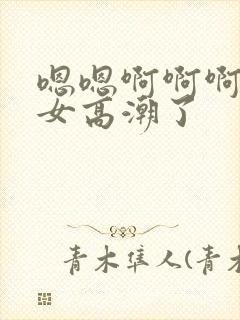 嗯嗯啊啊啊
女高潮了
青木隼人(青木